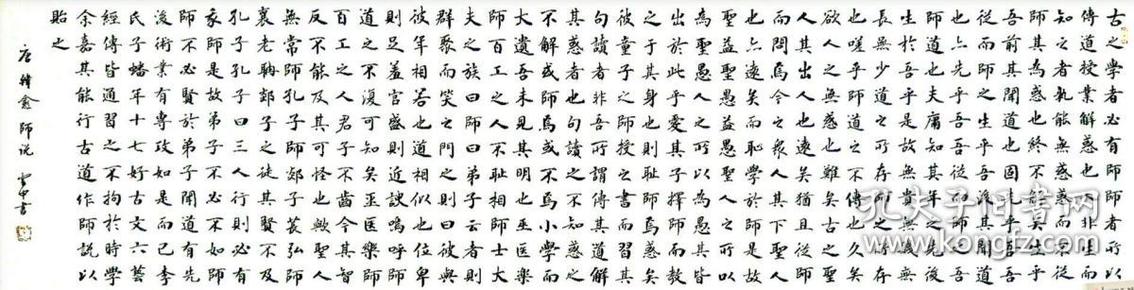 古之學者必有師師者所以
傳道授業解惑也人非生而
知之者孰能無惑惑而不從
師其為惑也終不解矣生乎
吾前其聞道也固先乎吾吾
從而師之生乎吾後其聞道
也亦先乎吾吾從而師之吾
師道也夫庸知其年之先後
生於吾乎是故無貴無賤無
長無少道之所存師之所存
也嗟乎師道之不傳也久矣
欲人之無惑也難矣古之聖
人其出人也遠矣猶且從師
而問焉今之眾人其下聖人
也亦遠矣而恥學於師是故
聖益聖愚益愚聖人之所以
為聖愚人之所以為愚其皆
出於此乎愛其子擇師而教
之於其身也則恥師焉惑矣
彼童子之師授之書而習其
句讀者非吾所謂傳其道解
其惑者也句讀之不知惑之
不解或師焉或不焉小學而
大遺吾未見其明也巫医樂
師百工之人不恥相師士大
夫之族曰師曰弟子云者則
群聚而笑之問之則曰彼與
彼年相若也道相似也位卑
則足羞官盛則近諛嗚呼師
道之不復可知矣巫医樂師
百工之人君子不齒今其智
反不能及其可怪也歟聖人
無常師孔子師郯子萇弘師
襄老聃郯子之徒其賢不及
孔子孔子曰三人行則必有
我師是故弟子不必不如師
師不必賢於弟子聞道有先
後術業有專攻如是而已李
氏子蟠年十七好古文六藝
經傳皆通習之不拘於時學
余嘉其能行古道作師說以
貽之
唐韓愈師说
孔夫子旧书网
kongfz.com